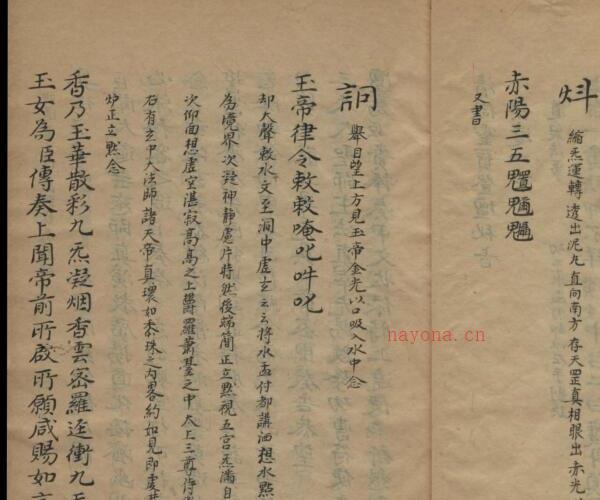 炓
縮炁運轉透出泥丸直向南方存天罡真相眼出赤光
赤陽三五
又書
詷
舉目望上方見玉帝金光以口吸入水中念
玉帝律令敕敕唵叱吽叱
却大聲敕水文至洞中虛玄云云將水盂付都講洒想水點
為境界次凝神靜慮片時然後端簡正立默視五宮炁滿自
次仰面想虛空湛寂高高之上欝羅蕭臺之中太上三尊侍
右有玄中大法師諸天帝真環如黍珠之內畧約如見即虔
炉正立默念
香乃玉華散彩九炁凝烟香雲密羅逕衝九天
玉女為臣傳奏上聞帝前所啟所願咸賜如言
nayona.cn